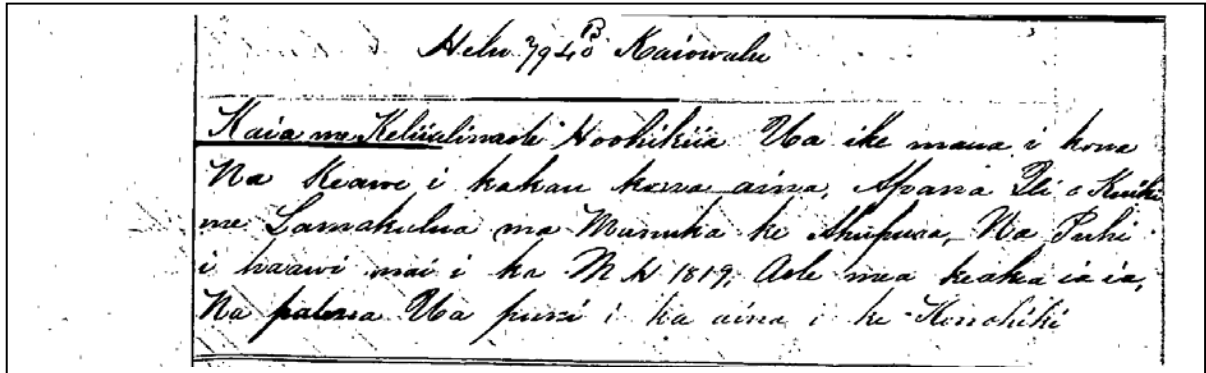 Helu 7940B Kaiowalu
Kaia me Keliialinaole Hoohikiia Ua ike maua i kona
Na Keawe i kakau kona aina, Apana Ili o
me Lamakulua ma Manuka ke Ahupuaa, Na Puhi
i haawi mai i ka M H 1819, Aole mea keakea ia ia,
Na palena Ua puni i ka aina i ke Konohiki